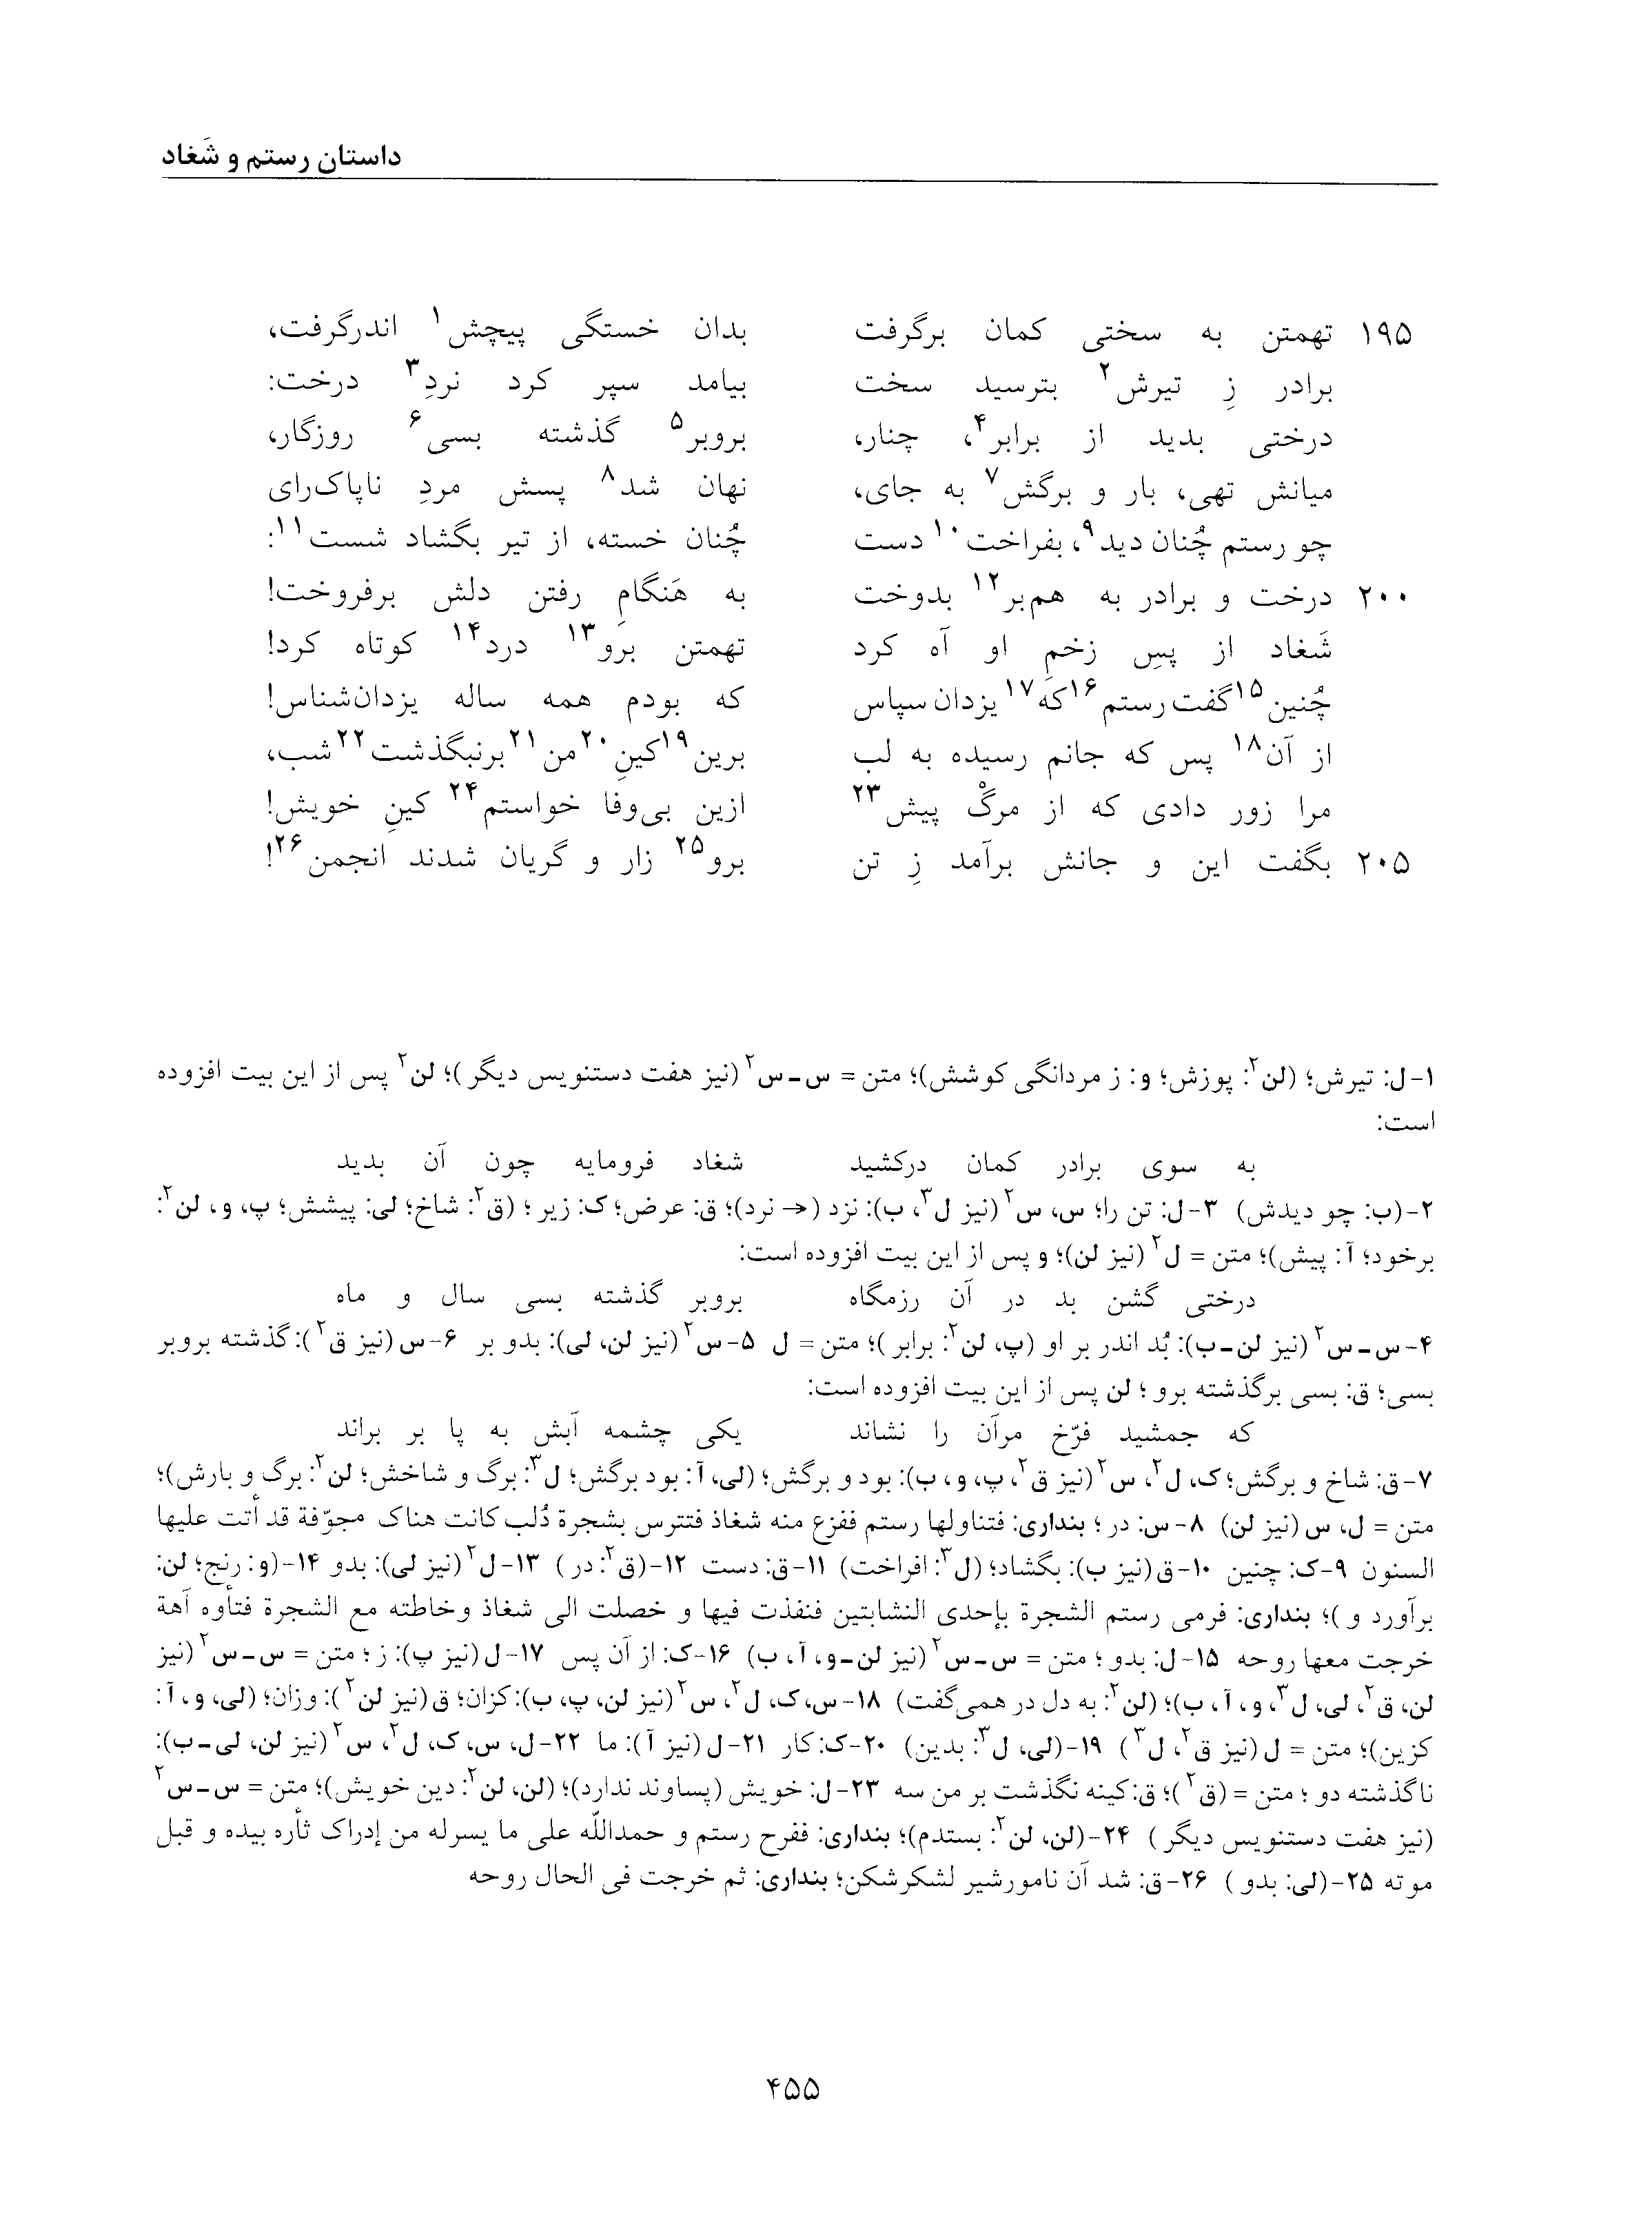 داستان رستم و شَغاد
۱۹۵ تهمتن به سختی کمان برگرفت بدان خستگی پیچش۱ اندرگرفت،
برادر زِ تیرش۲ بترسید سخت بیامد سپر کرد نردِ۳ درخت:
درختی بدید از برابر۴، چنار، بروبر۵ گذشته بسی۶ روزگار،
میانش تهی، بار و برگش۷ به جای، نهان شد۸ پسش مردِ ناپاک‌رای
چو رستم چُنان دید۹، بفراخت۱۰ دست چُنان خسته، از تیر بگشاد شست۱۱:
۲۰۰ درخت و برادر به هم‌بر۱۲ بدوخت به هَنگامِ رفتن دلش برفروخت!
شَغاد از پسِ زخمِ او آه کرد تهمتن برو۱۳ درد۱۴ کوتاه کرد!
چُنین۱۵ گفت رستم۱۶ که۱۷ یزدان سپاس که بودم همه ساله یزدان‌شناس!
از آن۱۸ پس که جانم رسیده به لب برین۱۹ کینِ۲۰ من۲۱ برنبگذشت۲۲ شب،
مرا زور دادی که از مرگْ پیش۲۳ ازین بی‌وفا خواستم۲۴ کینِ خویش!
۲۰۵ بگفت این و جانش برآمد زِ تن برو۲۵ زار و گریان شدند انجمن۲۶!
۱-ل: تیرش؛ (لن۲: پوزش؛ و: ز مردانگی کوشش)؛ متن = س-س۲ (نیز هفت دستنویس دیگر)؛ لن۲ پس از این بیت افزوده
است:
به سوی برادر کمان درکشید شغاد فرومایه چون آن بدید
۲-(ب: چو دیدش) ۳-ل: تن را؛ س، س۲ (نیز ل۳، ب): نزد (→ نرد)؛ ق: عرض؛ ک: زیر؛ (ق۲: شاخ؛ لی: پیشش؛ پ، و، لن۲:
برخود؛ آ: پیش)؛ متن = ل۲ (نیز لن)؛ و پس از این بیت افزوده است:
درختی گشن بد در آن رزمگاه بروبر گذشته بسی سال و ماه
۴-س-س۲ (نیز لن-ب): بُد اندر بر او (پ، لن۲: برابر)؛ متن = ل ۵-س۲ (نیز لن، لی): بدو بر ۶-س (نیز ق۲): گذشته بروبر
بسی؛ ق: بسی برگذشته برو؛ لن پس از این بیت افزوده است:
که جمشید فرّخ مرآن را نشاند یکی چشمه آبش به پا بر براند
۷-ق: شاخ و برگش؛ ک، ل۲، س۲ (نیز ق۲، پ، و، ب): بود و برگش؛ (لی، آ: بود برگش؛ ل۳: برگ و شاخش؛ لن۲: برگ و بارش)؛
متن = ل، س (نیز لن) ۸-س: در؛ بنداری: فتناولها رستم ففزع منه شغاذ فتترس بشجرة دُلب کانت هناک مجوّفة قد أتت علیها
السنون ۹-ک: چنین ۱۰-ق (نیز ب): بگشاد؛ (ل۳: افراخت) ۱۱-ق: دست ۱۲-(ق۲: در) ۱۳-ل۲ (نیز لی): بدو ۱۴-(و: رنج؛ لن:
برآورد و)؛ بنداری: فرمی رستم الشجرة بإحدی النشابتین فنفذت فیها و خصلت الی شغاذ وخاطته مع الشجرة فتأوه آهة
خرجت معها روحه ۱۵-ل: بدو؛ متن = س-س۲ (نیز لن-و، آ، ب) ۱۶-ک: از آن پس ۱۷-ل (نیز پ): ز؛ متن = س-س۲ (نیز
لن، ق۲، لی، ل۳، و، آ، ب)؛ (لن۲: به دل در همی‌گفت) ۱۸-س، ک، ل۲، س۲ (نیز لن، پ، ب): کزان؛ ق (نیز لن۲): وزان؛ (لی، و، آ:
کزین)؛ متن = ل (نیز ق۲، ل۳) ۱۹-(لی، ل۳: بدین) ۲۰-ک: کار ۲۱-ل (نیز آ): ما ۲۲-ل، س، ک، ل۲، س۲ (نیز لن، لی-ب):
ناگذشته دو؛ متن = (ق۲)؛ ق: کینه نگذشت بر من سه ۲۳-ل: خویش (پساوند ندارد)؛ (لن، لن۲: دین خویش)؛ متن = س-س۲
(نیز هفت دستنویس دیگر) ۲۴-(لن، لن۲: بستدم)؛ بنداری: ففرح رستم و حمدالله علی ما یسرله من إدراک ثأره بیده و قبل
موته ۲۵-(لی: بدو) ۲۶-ق: شد آن نامورشیر لشکرشکن؛ بنداری: ثم خرجت فی الحال روحه
۴۵۵